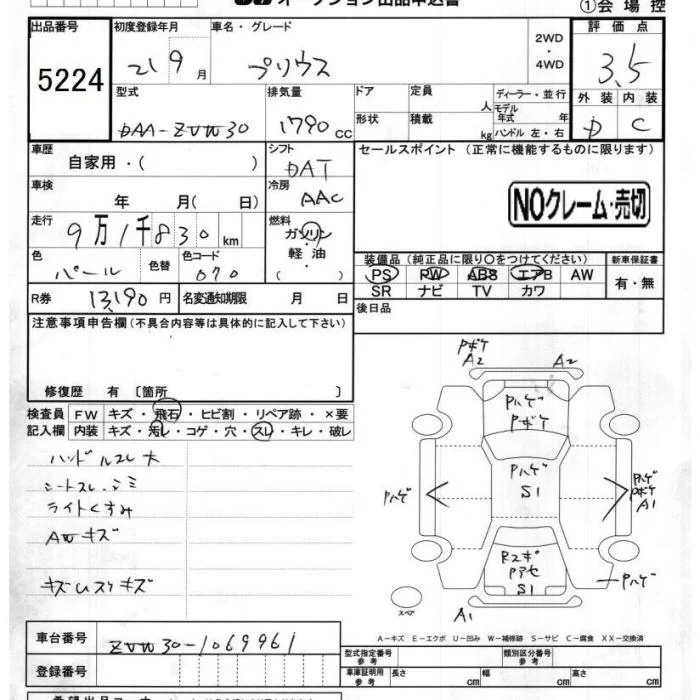 オークション出品申込書
①会場控
出品番号 初度登録年月 車名・グレード 2WD・4WD 評価点
5224 21 9月 プリウス 3.5
型式 排気量 ドア 定員 人 ディーラー・並行 外装 内装
DAA-ZVW30 1790 cc 形状 積載 kg モデル年式 年 ハンドル 左・右 D C
車歴 シフト セールスポイント (正常に機能するものに限ります)
自家用・( ) DAT
車検 冷房
年 月( 日) AAC NOクレーム・売切
走行 燃料
9万1千830km ガソリン・軽油
色 色替 色コード 装備品 (純正品に限り○をつけてください) 新車保証書
パール 070 PS PW ABS エアB AW 有・無
SR ナビ TV カワ
R券 13,190円 名変通知期限 月 日 後日品
注意事項申告欄 (不具合内容等は具体的に記入して下さい)
修復歴 有 〔箇所 〕
検査員 FW キズ・飛石・ヒビ割・リペア跡・×要
記入欄 内装 キズ・汚レ・コゲ・穴・スレ・キレ・破レ
ハンドルスレ大
シートスレ、シミ
ライトくすみ
AWキズ
Pボケ
A2 A2
Pハゲ
Pボケ
Pハゲ
S1
Pハゲ
Pハゲ
Pボケ
A1
S1
Pハゲ
スペア
A1
A−キズ E−エクボ U−凹み W−補修跡 S−サビ C−腐食 XX−交換済
車台番号 ZVW30-1069961
登録番号
型式指定番号 参考 類別区分番号 参考
車庫証明用 参考 長さ cm 幅 cm 高さ cm